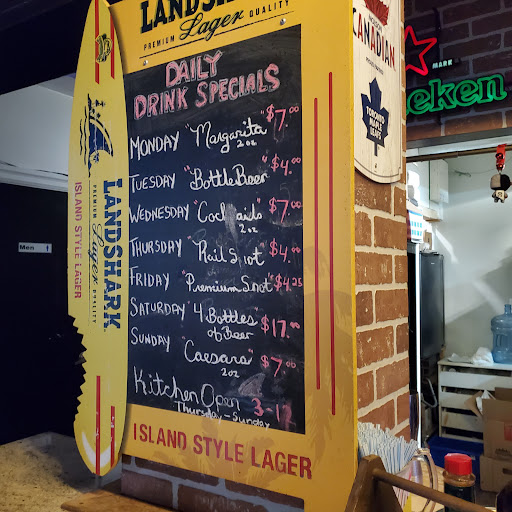 LANDSHARK
PREMIUM Lager QUALITY
DAILY
DRINK SPECIALS
MONDAY "Margarita" $7.00
2oz
TUESDAY "Bottle Beer" $4.00
WEDNESDAY "Cocktails" $7.00
2oz
THURSDAY "Rail Shot" $4.00
FRIDAY "Premium Shot" $4.25
SATURDAY "4 Bottles of Beer" $17.00
SUNDAY "Caesars" $7.00
2oz
Kitchen Open 3-
Thursday-Sunday
ISLAND STYLE LAGER
LANDSHARK
PREMIUM Lager QUALITY
ISLAND STYLE LAGER
Men
CANADIAN
TORONTO
MAPLE
LEAFS
MARK
eken